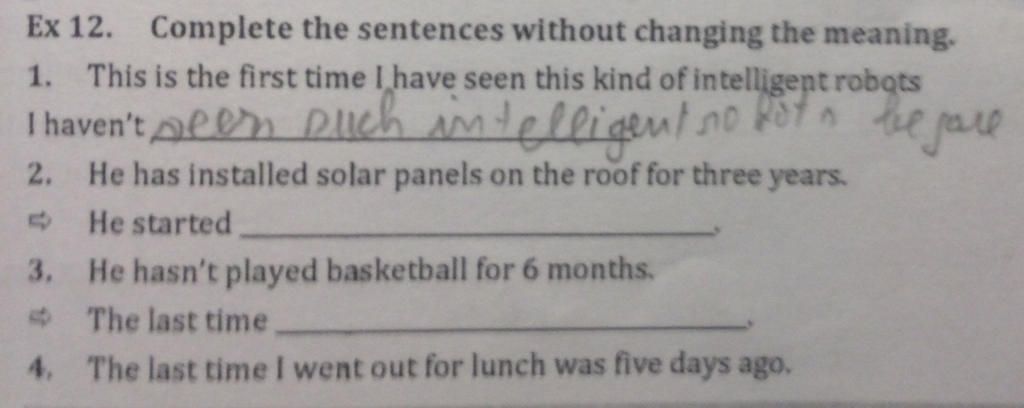 Ex 12. Complete the sentences without changing the meaning.
1. This is the first time I have seen this kind of intelligent robots
I haven't seen such intelligent robots before
2. He has installed solar panels on the roof for three years.
⇨ He started ____________________.
3. He hasn't played basketball for 6 months.
⇨ The last time ____________________.
4. The last time I went out for lunch was five days ago.